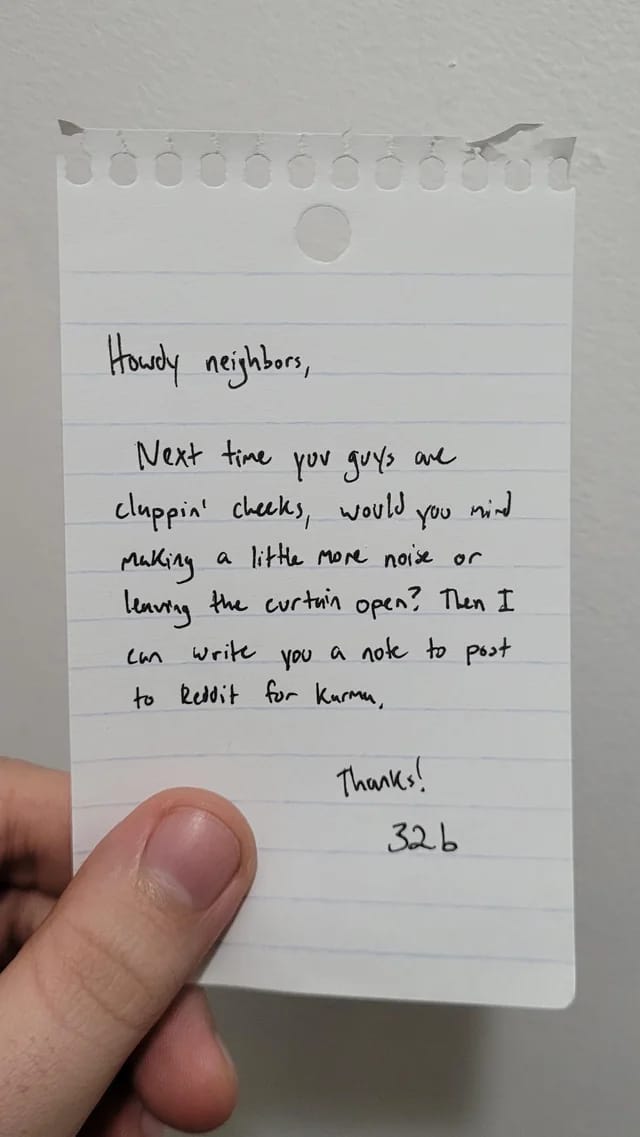 Howdy neighbors,
Next time you guys are
clappin' cheeks, would you mind
making a little more noise or
leaving the curtain open? Then I
can write you a note to post
to Reddit for Karma.
Thanks!
32b